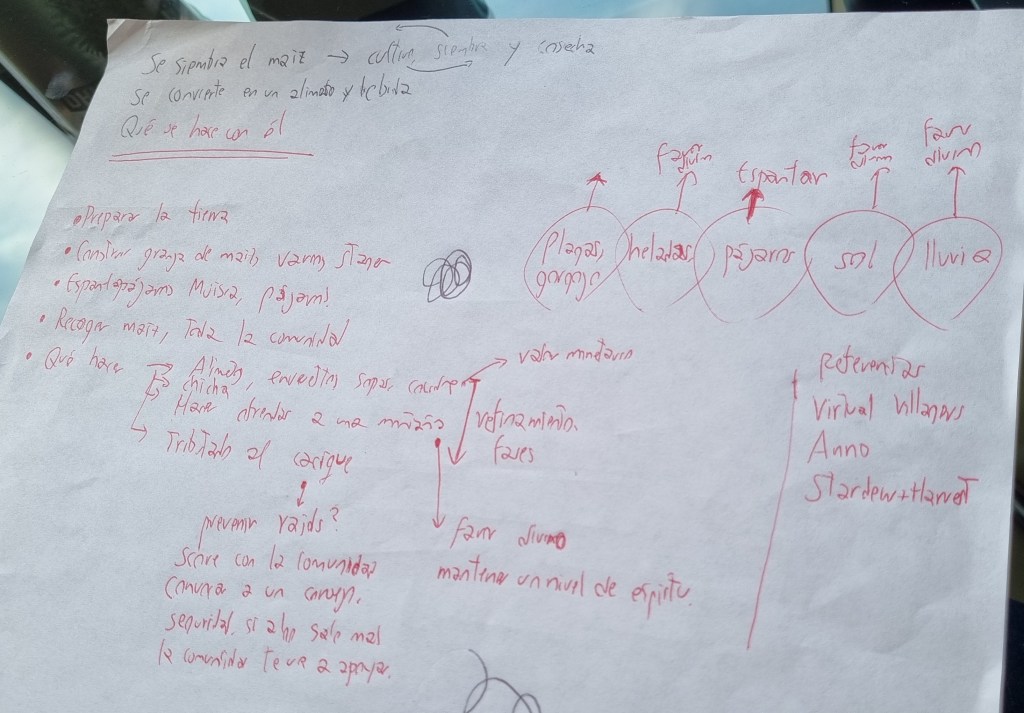 Se siembra el maíz → cultivo, siembra y cosecha
Se convierte en un alimento y bebida
Qué se hace con él
• Preparar la tierra
• Construir granja de maíz,
• Espantapájaros Muisca, pájaros!
• Recoger maíz, Toda la comunidad
• Qué hacer
Alimento, envueltos, sopas,
chicha
Hacer ofrendas a una
Tributado al cacique
prevenir raids?
Score con la comunidad
a un
seguridad, si algo sale mal
la comunidad te va a apoyar.
valor monetario
refinamiento.
fases
favor divino
mantener un nivel de espíritu.
favor
divino
Espantar
favor
divino
favor
divino
plagas,
gorgojo
heladas
pájaros
sol
lluvia
Referencias
Virtual Villagers
Anno
Stardew + Harvest